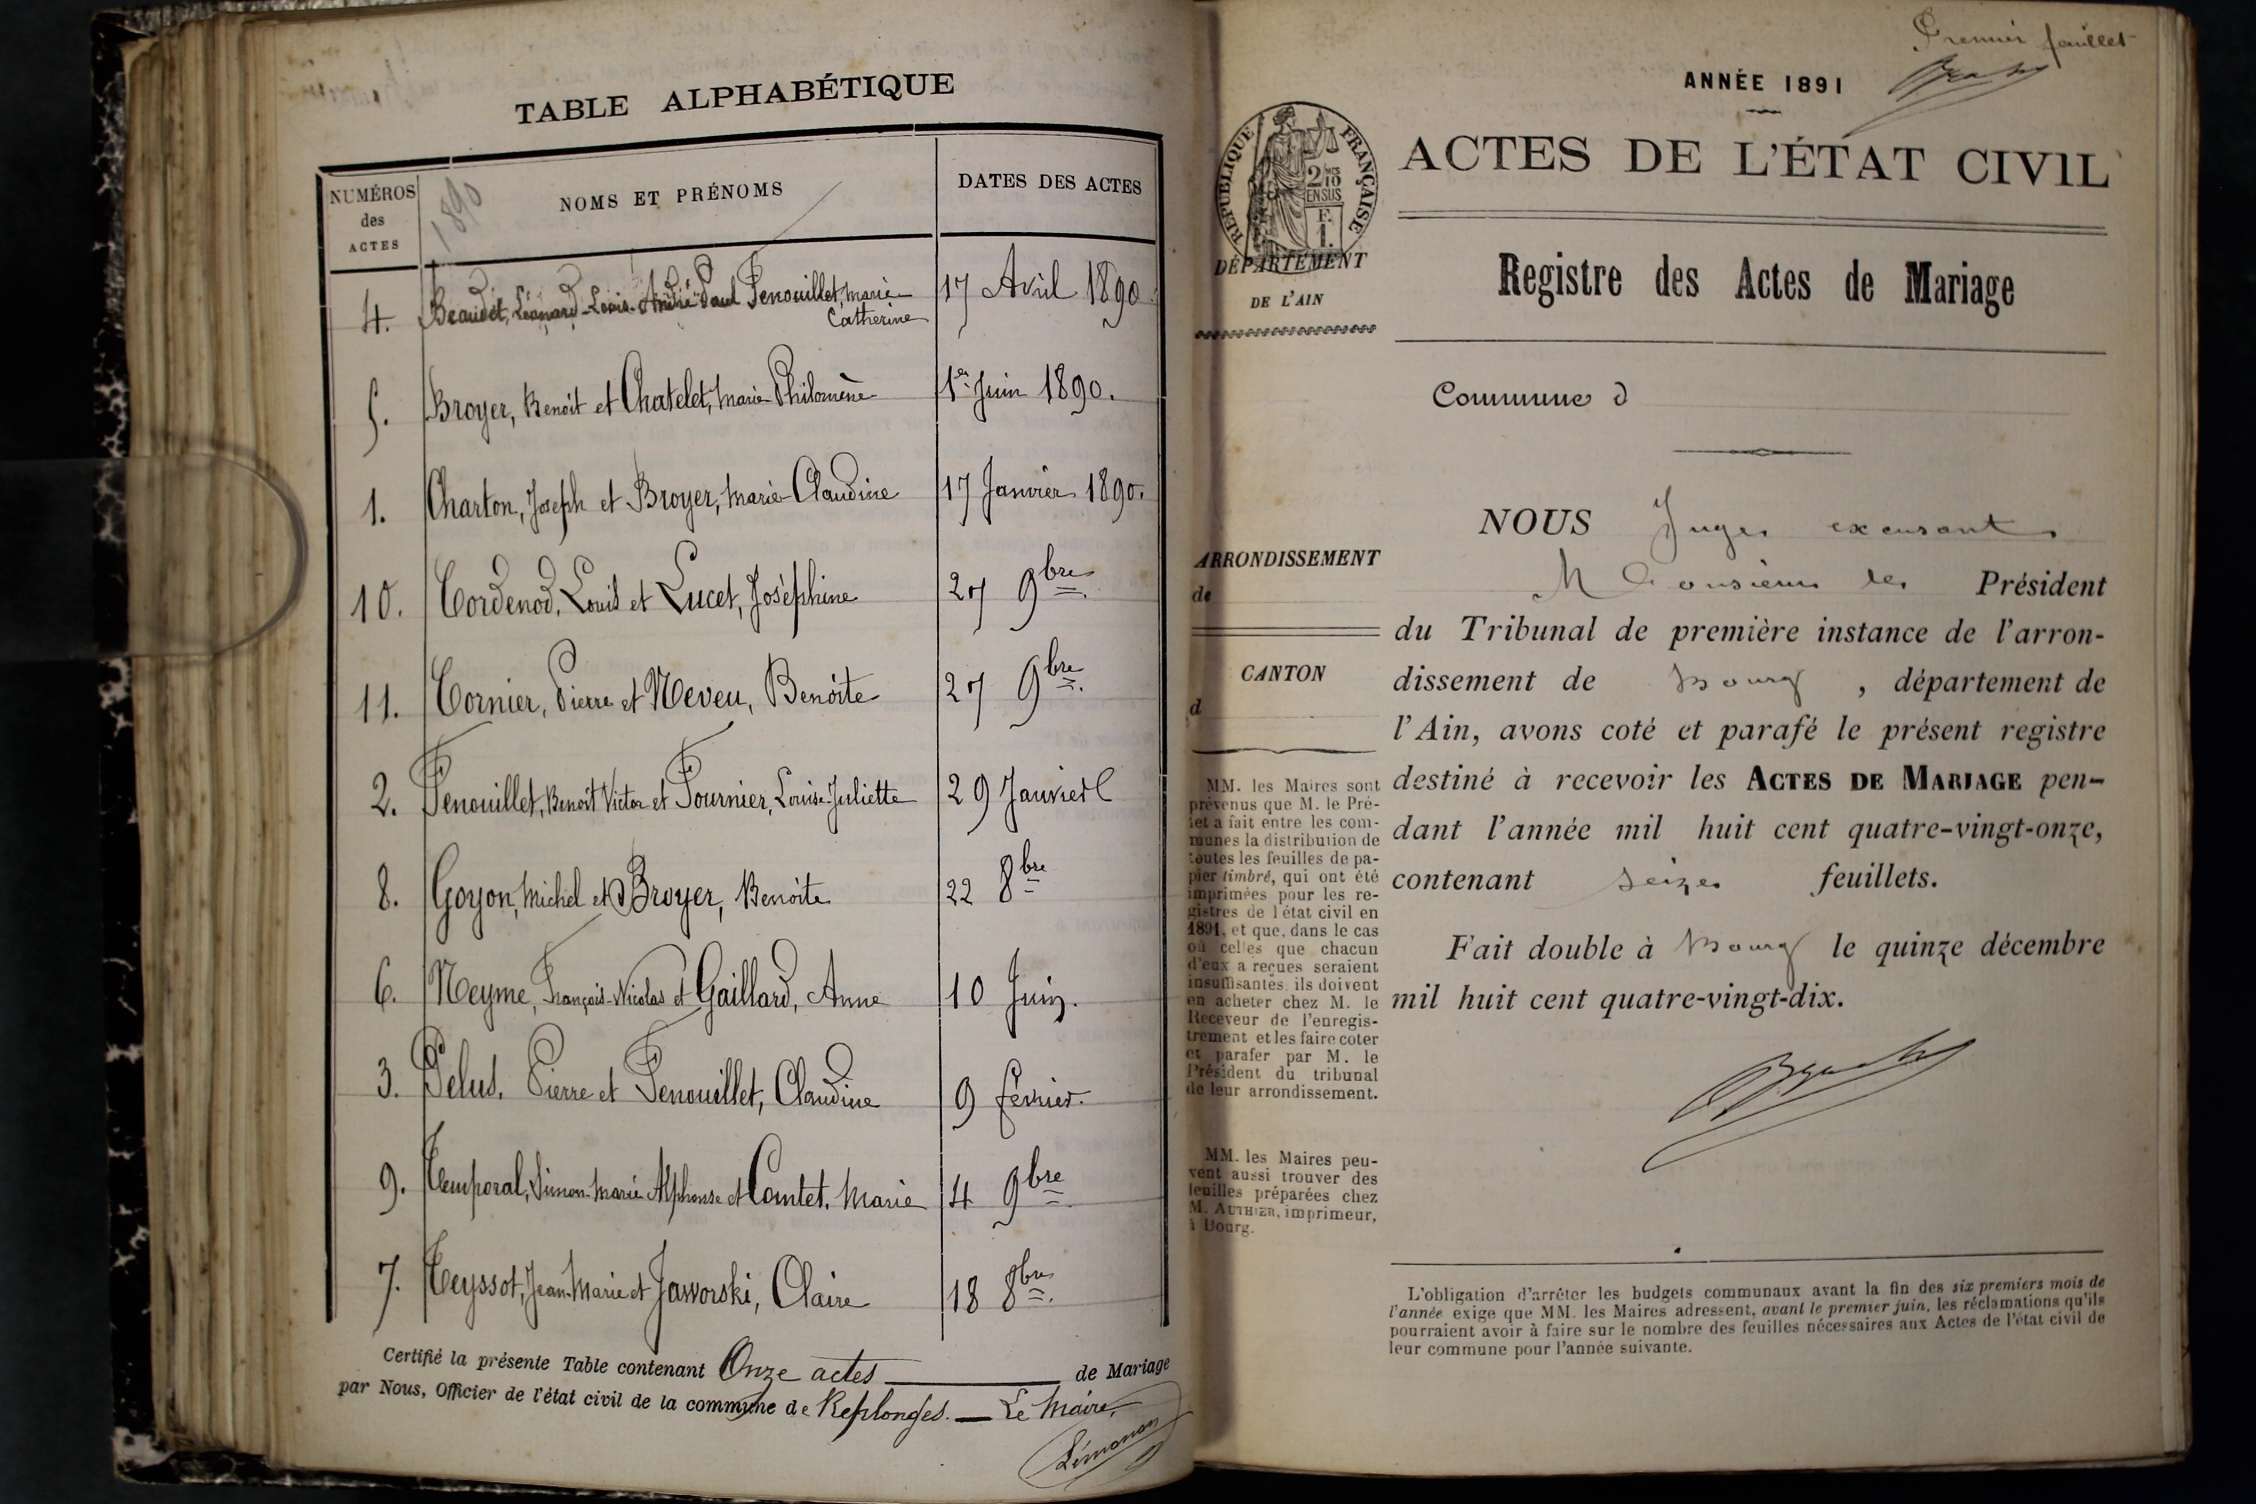 TABLE ALPHABÉTIQUE
NUMÉROS
des
ACTES
1890
NOMS ET PRÉNOMS
DATES DES ACTES
4. Beaudet, Léonard-Louis-André-Paul Fenouillet, marie 17 Avril 1890.
Catherine
5. Broyer, Benoit et Chatelet, Marie Philomène 1er Juin 1890.
1. Charton, Joseph et Broyer, Marie-Claudine 17 Janvier 1890.
10. Cordenod, Louis et Lucet, Joséphine 27 9bre.
11. Cornier, Pierre et Neveu, Benoîte 27 9bre.
2. Fenouillet, Benoit Victor et Fournier, Louise-Juliette 29 Janvier
8. Goyon, Michel et Broyer, Benoîte 22 8bre
6. Neyme, François-Nicolas et Gaillard, Anne 10 Juin.
3. Pelus, Pierre et Fenouillet, Claudine 9 février.
9. Temporal, Simon-Marie Alphonse et Comtet, Marie 4 9bre
7. Teyssot, Jean-Marie et Jaworski, Claire 18 8bre.
Certifié la présente Table contenant Onze actes de Mariage
par Nous, Officier de l'état civil de la commune de Replonges. — Le Maire,
Lémonon
Premier feuillet
ANNÉE 1891
RÉPUBLIQUE FRANÇAISE
2 10
EN SUS
F.
1.
ACTES DE L'ÉTAT CIVIL
DÉPARTEMENT
DE L'AIN
Registre des Actes de Mariage
Commune d
NOUS Juge excusant
Monsieur le Président
du Tribunal de première instance de l'arron-
dissement de Bourg, département de
l'Ain, avons coté et parafé le présent registre
destiné à recevoir les ACTES DE MARIAGE pen-
dant l'année mil huit cent quatre-vingt-onze,
contenant seize feuillets.
Fait double à Bourg le quinze décembre
mil huit cent quatre-vingt-dix.
ARRONDISSEMENT
de
CANTON
d
MM. les Maires sont
prévenus que M. le Pré-
fet a fait entre les com-
munes la distribution de
toutes les feuilles de pa-
pier timbré, qui ont été
imprimées pour les re-
gistres de l'état civil en
1891, et que, dans le cas
où celles que chacun
d'eux a reçues seraient
insuffisantes, ils doivent
en acheter chez M. le
Receveur de l'enregis-
trement et les faire coter
et parafer par M. le
Président du tribunal
de leur arrondissement.
MM. les Maires peu-
vent aussi trouver des
feuilles préparées chez
M. AUTHIER, imprimeur,
à Bourg.
L'obligation d'arrêter les budgets communaux avant la fin des six premiers mois de
l'année exige que MM. les Maires adressent, avant le premier juin, les réclamations qu'ils
pourraient avoir à faire sur le nombre des feuilles nécessaires aux Actes de l'état civil de
leur commune pour l'année suivante.